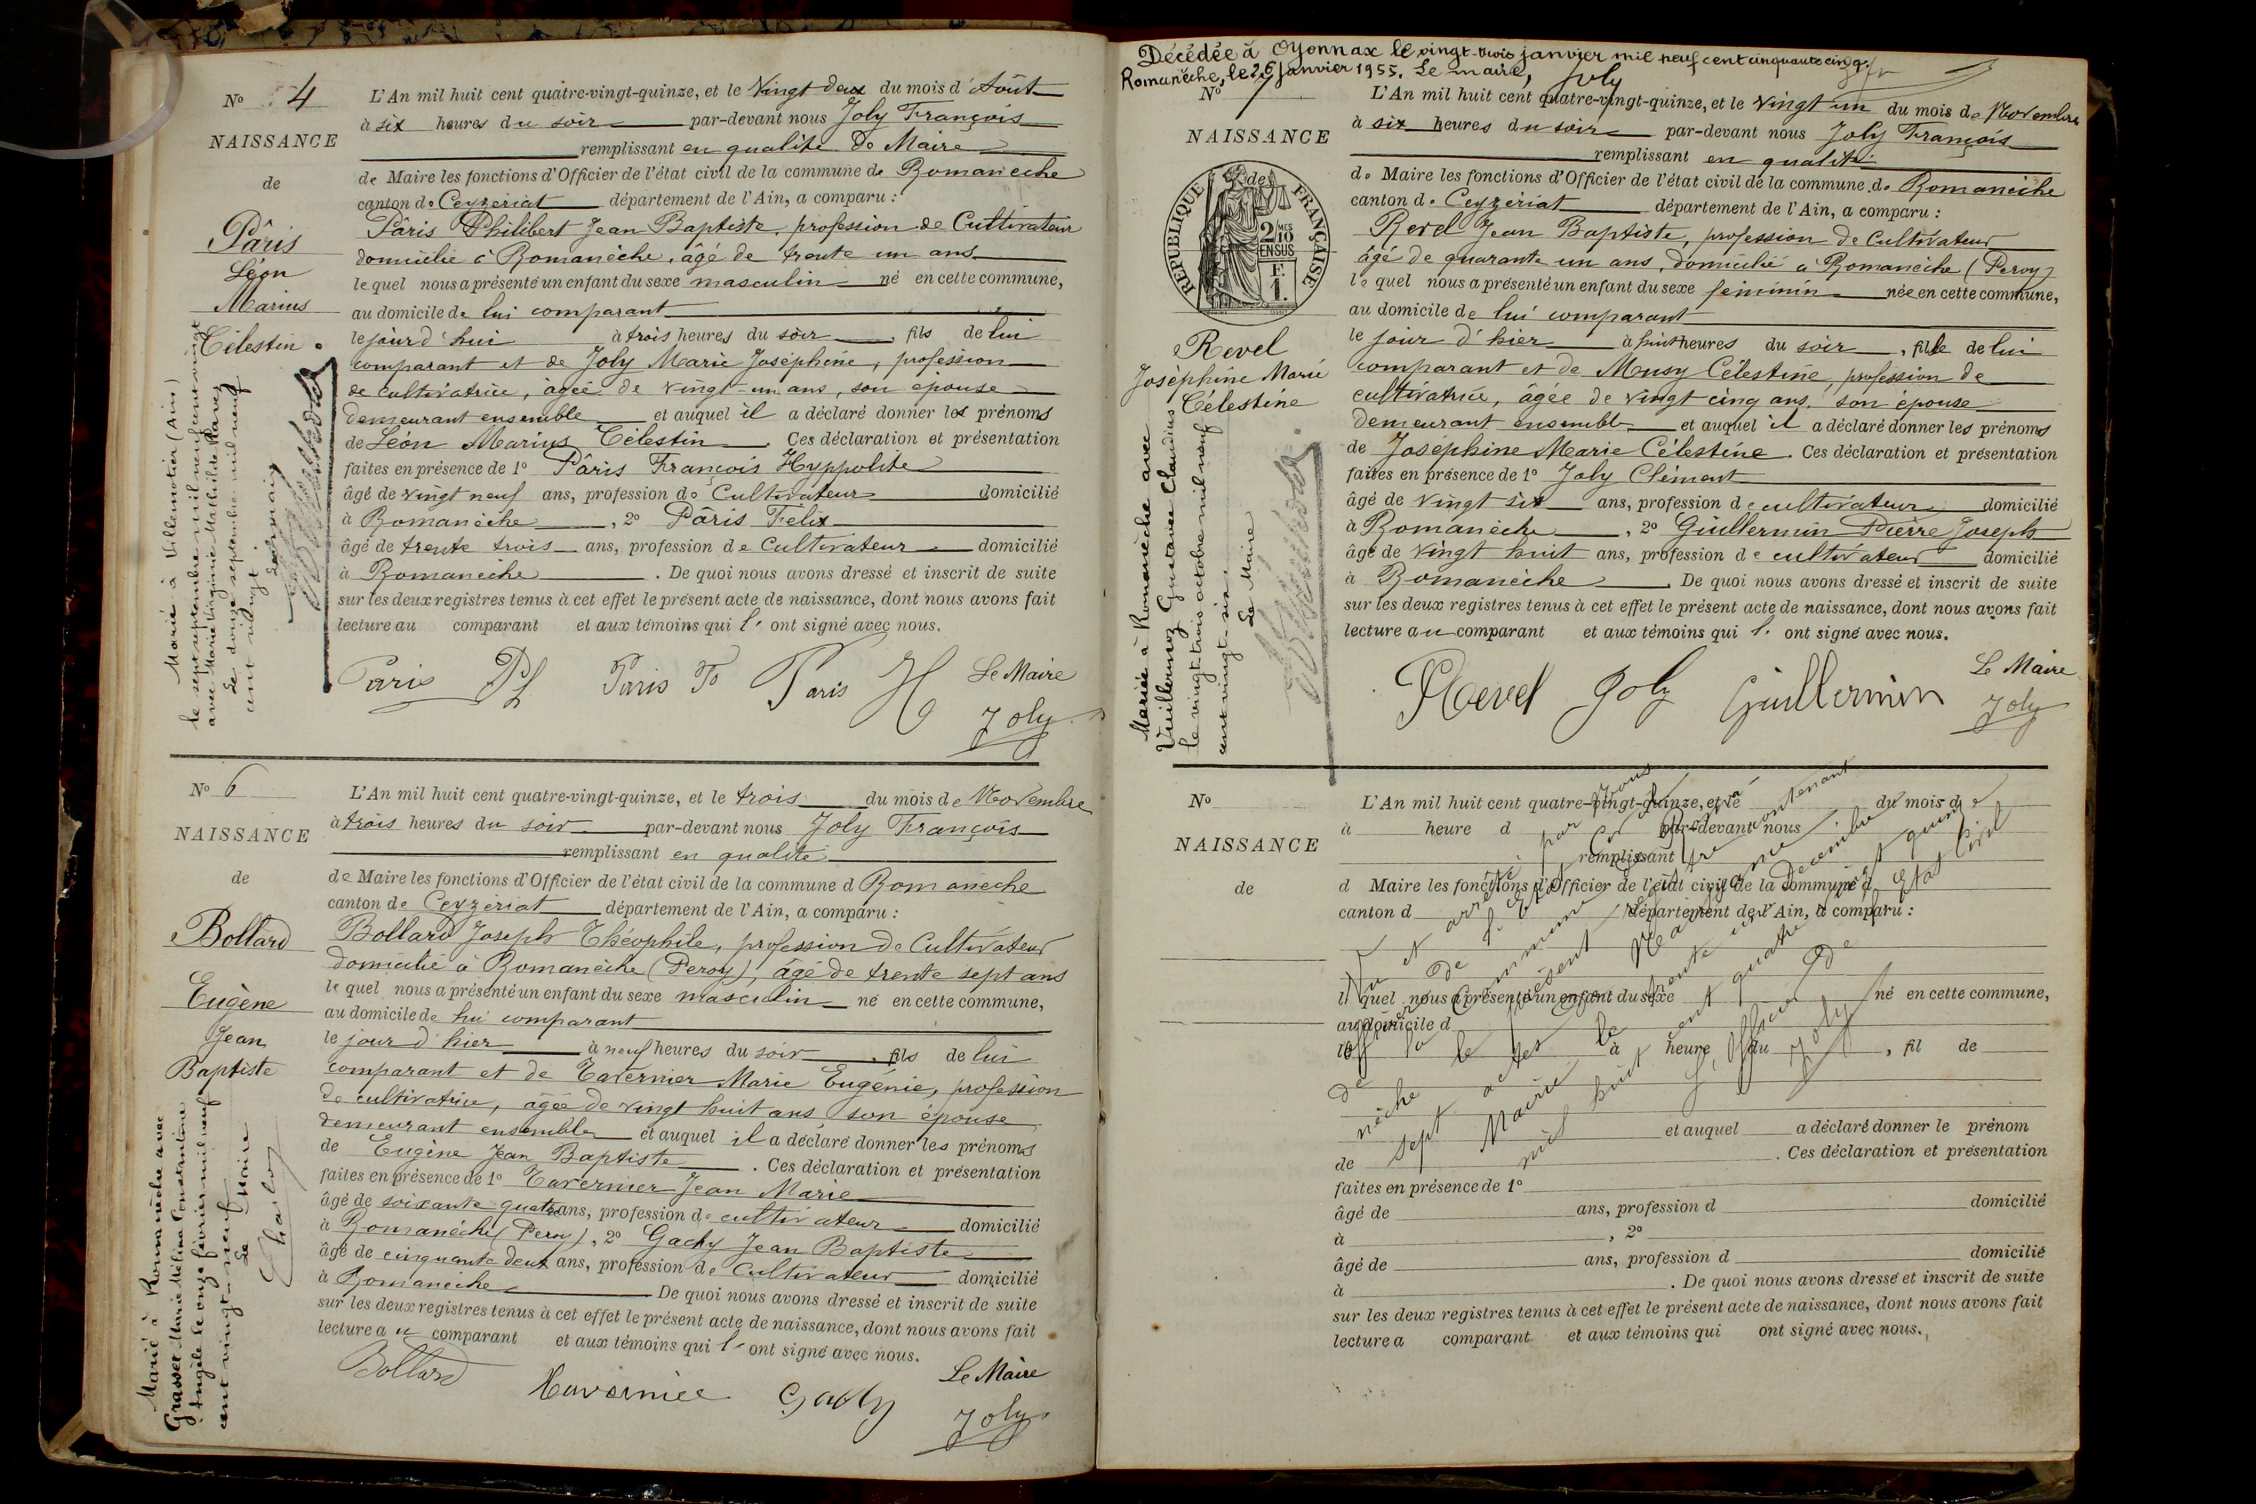 N° 4
NAISSANCE
de
Pâris
Léon
Marius
Célestin
L'An mil huit cent quatre-vingt-quinze, et le Vingt deux du mois d'Août
à six heures du soir par-devant nous Joly François
remplissant en qualité de Maire
de Maire les fonctions d'Officier de l'état civil de la commune de Romanèche
canton de Ceyzériat département de l'Ain, a comparu :
Pâris Philibert Jean Baptiste, profession de Cultivateur
domicilié à Romanèche, âgé de trente un ans
lequel nous a présenté un enfant du sexe masculin né en cette commune,
au domicile de lui comparant
le jourd'hui à trois heures du soir, fils de lui
comparant et de Joly Marie Joséphine, profession
de cultivatrice, âgée de vingt-un ans, son épouse
demeurant ensemble et auquel il a déclaré donner les prénoms
de Léon Marius Célestin Ces déclaration et présentation
faites en présence de 1° Pâris François Hyppolite
âgé de vingt neuf ans, profession de Cultivateur domicilié
à Romanèche, 2° Pâris Félix
âgé de trente trois ans, profession de Cultivateur domicilié
à Romanèche. De quoi nous avons dressé et inscrit de suite
sur les deux registres tenus à cet effet le présent acte de naissance, dont nous avons fait
lecture au comparant et aux témoins qui l' ont signé avec nous.
Paris Ph Paris F Paris H Le Maire
Joly
Marié à Villemotier (Ain)
le sept septembre mil neuf cent vingt
avec Marie Virginie Mathilde Ravez
Le douze septembre mil neuf
cent vingt.
Le maire
N° 6
NAISSANCE
de
Bollard
Eugène
Jean
Baptiste
L'An mil huit cent quatre-vingt-quinze, et le trois du mois de Novembre
à trois heures du soir par-devant nous Joly François
remplissant en qualité
de Maire les fonctions d'Officier de l'état civil de la commune d Romanèche
canton de Ceyzériat département de l'Ain, a comparu :
Bollard Joseph Théophile, profession de Cultivateur
domicilié à Romanèche (Peroy), âgé de trente sept ans
lequel nous a présenté un enfant du sexe masculin né en cette commune,
au domicile de lui comparant
le jour d'hier à neuf heures du soir, fils de lui
comparant et de Tavernier Marie Eugénie, profession
de cultivatrice, âgée de vingt huit ans son épouse
demeurant ensemble et auquel il a déclaré donner les prénoms
de Eugène Jean Baptiste. Ces déclaration et présentation
faites en présence de 1° Tavernier Jean Marie
âgé de soixante quatre ans, profession de cultivateur domicilié
à Romanèche (Peroy), 2° Gachy Jean Baptiste
âgé de cinquante deux ans, profession de Cultivateur domicilié
à Romanèche De quoi nous avons dressé et inscrit de suite
sur les deux registres tenus à cet effet le présent acte de naissance, dont nous avons fait
lecture au comparant et aux témoins qui l' ont signé avec nous.
Bollard Tavernier Gachy Le Maire
Joly
Marié à Romanèche avec
Grasset Marie Mélina Constantine
Angèle le onze février mil neuf
cent vingt-neuf
Le Maire
Décédée à Oyonnax le vingt-trois janvier mil neuf cent cinquante cinq.
Romanèche, le 26 janvier 1955. Le maire, Joly
N° 7
NAISSANCE
de
RÉPUBLIQUE FRANÇAISE
2/10 MES
EN SUS
1 F.
Revel
Joséphine Marie
Célestine
L'An mil huit cent quatre-vingt-quinze, et le Vingt un du mois de Novembre
à six heures du soir par-devant nous Joly François
remplissant en qualité
de Maire les fonctions d'Officier de l'état civil de la commune de Romanèche
canton de Ceyzériat département de l'Ain, a comparu :
Revel Jean Baptiste, profession de Cultivateur
âgé de quarante un ans, domicilié à Romanèche (Peroy)
lequel nous a présenté un enfant du sexe féminin née en cette commune,
au domicile de lui comparant
le jour d'hier à huit heures du soir, fille de lui
comparant et de Musy Célestine, profession de
cultivatrice, âgée de vingt cinq ans, son épouse
demeurant ensemble et auquel il a déclaré donner les prénoms
de Joséphine Marie Célestine. Ces déclaration et présentation
faites en présence de 1° Joly Clément
âgé de vingt six ans, profession de cultivateur domicilié
à Romanèche, 2° Guillermin Pierre Joseph
âgé de vingt huit ans, profession de cultivateur domicilié
à Romanèche. De quoi nous avons dressé et inscrit de suite
sur les deux registres tenus à cet effet le présent acte de naissance, dont nous avons fait
lecture au comparant et aux témoins qui l' ont signé avec nous.
Revel Joly Guillermin Le Maire
Joly
Mariée à Romanèche avec
Vuillermoz Gustave Claudius
le vingt-trois octobre mil neuf
cent vingt-six.
Le Maire
N°
NAISSANCE
de
L'An mil huit cent quatre-vingt-quinze, et le du mois d
à heure d par-devant nous
remplissant
d Maire les fonctions d'Officier de l'état civil de la commune d
canton d département de l'Ain, a comparu :
l quel nous a présenté un enfant du sexe né en cette commune,
au domicile d
le à heure du, fil de
et auquel a déclaré donner le prénom
de. Ces déclaration et présentation
faites en présence de 1°
âgé de ans, profession d domicilié
à, 2°
âgé de ans, profession d domicilié
à. De quoi nous avons dressé et inscrit de suite
sur les deux registres tenus à cet effet le présent acte de naissance, dont nous avons fait
lecture a comparant et aux témoins qui ont signé avec nous.
Vu et arrêté par Nous
officier de l'Etat Civil
de la Commune de Roma
nèche le présent registre contenant
sept actes
Mairie le trente un Décembre
mil huit cent quatre vingt quinze
L'Officier de l'Etat Civil
Joly